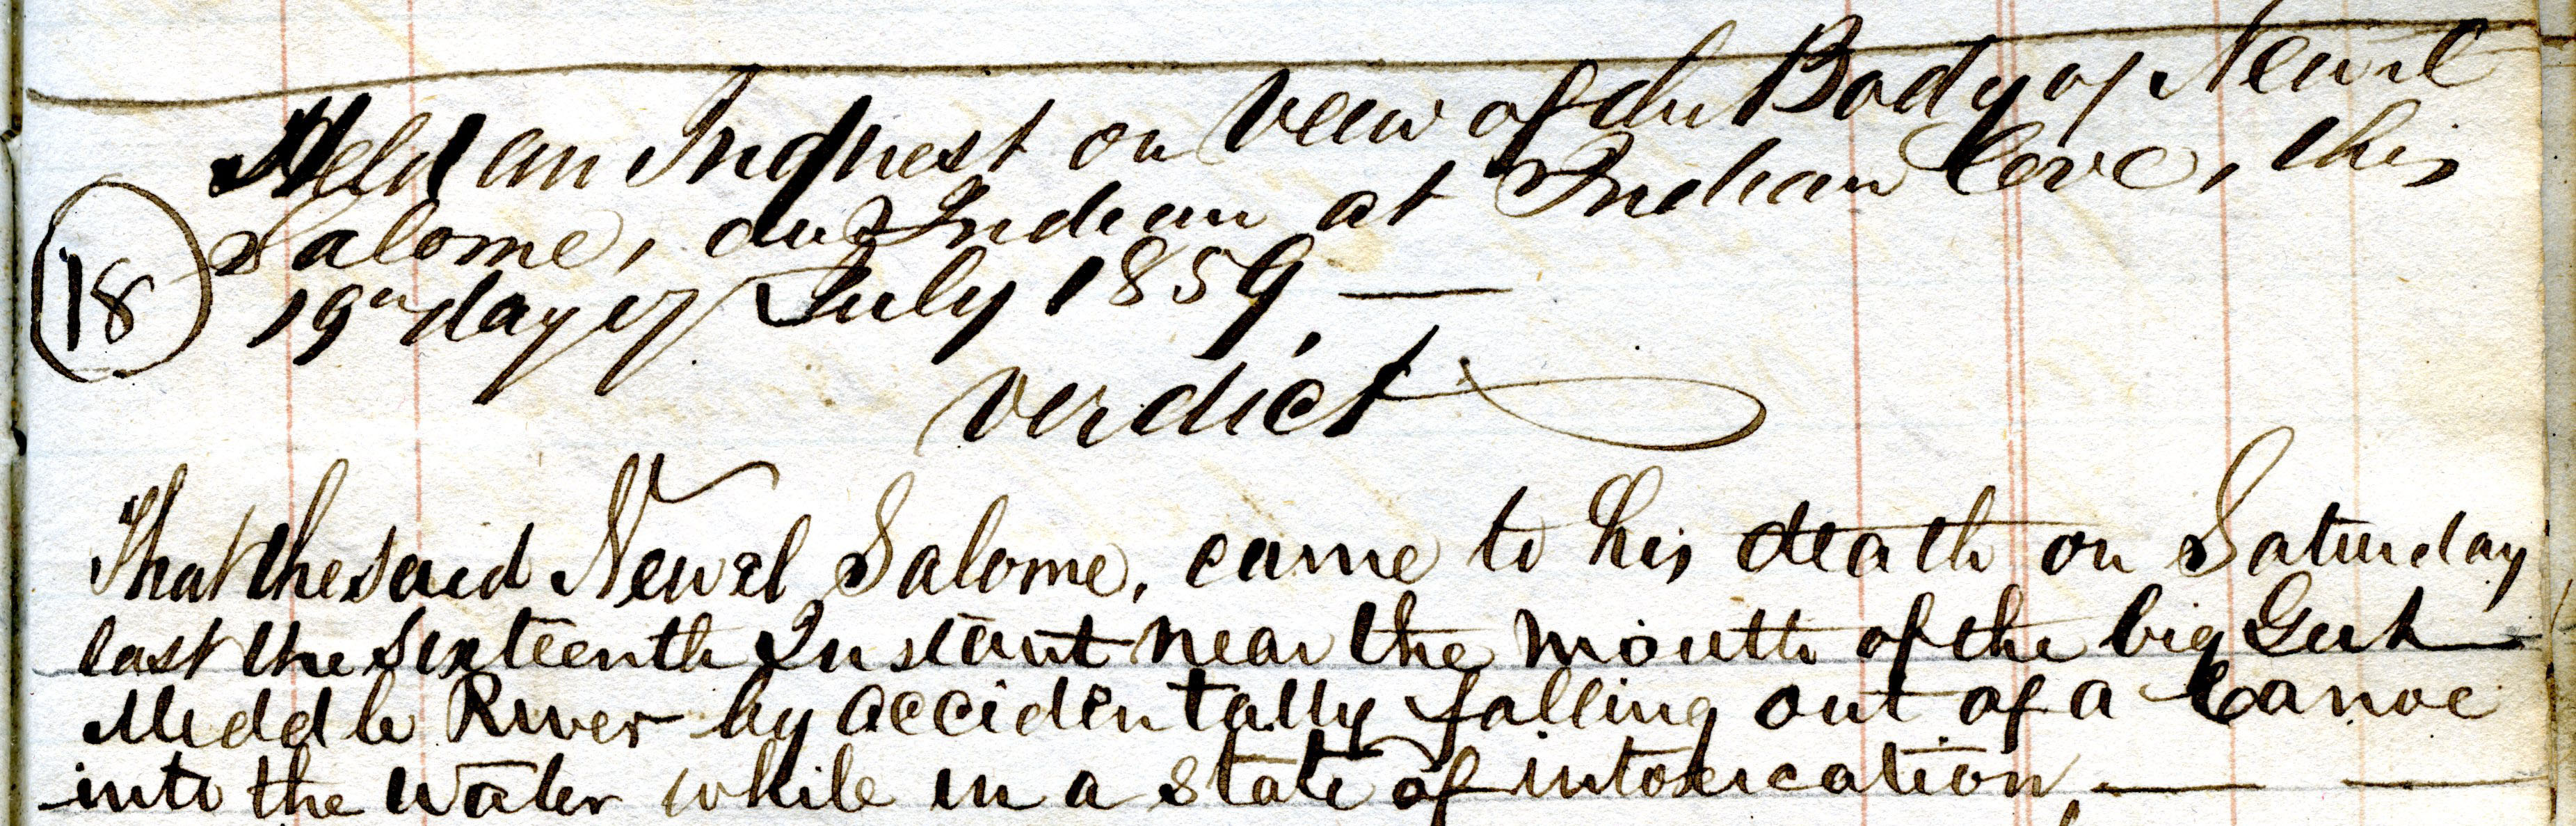 Held an Inquest on View of the Body of Newel
Salome, an Indian at Indian Cove, this
18
19th day of July 1859, —
Verdict
That the said Newel Salome, came to his death on Saturday
last the Sixteenth Instant near the mouth of the big Gut
Middle River by accidentally falling out of a Canoe
into the Water while in a state of intoxication, — —